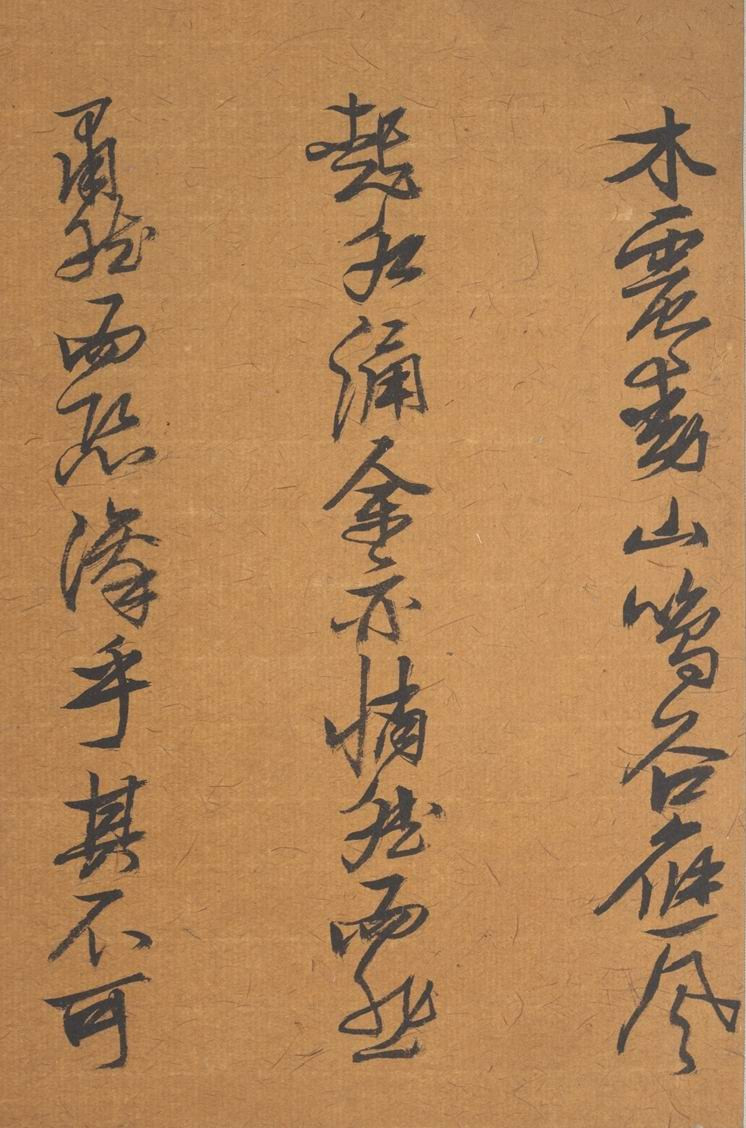 木震動山鳴谷應風
起水涌余亦悄然而悲
肅然而恐凜乎其不可